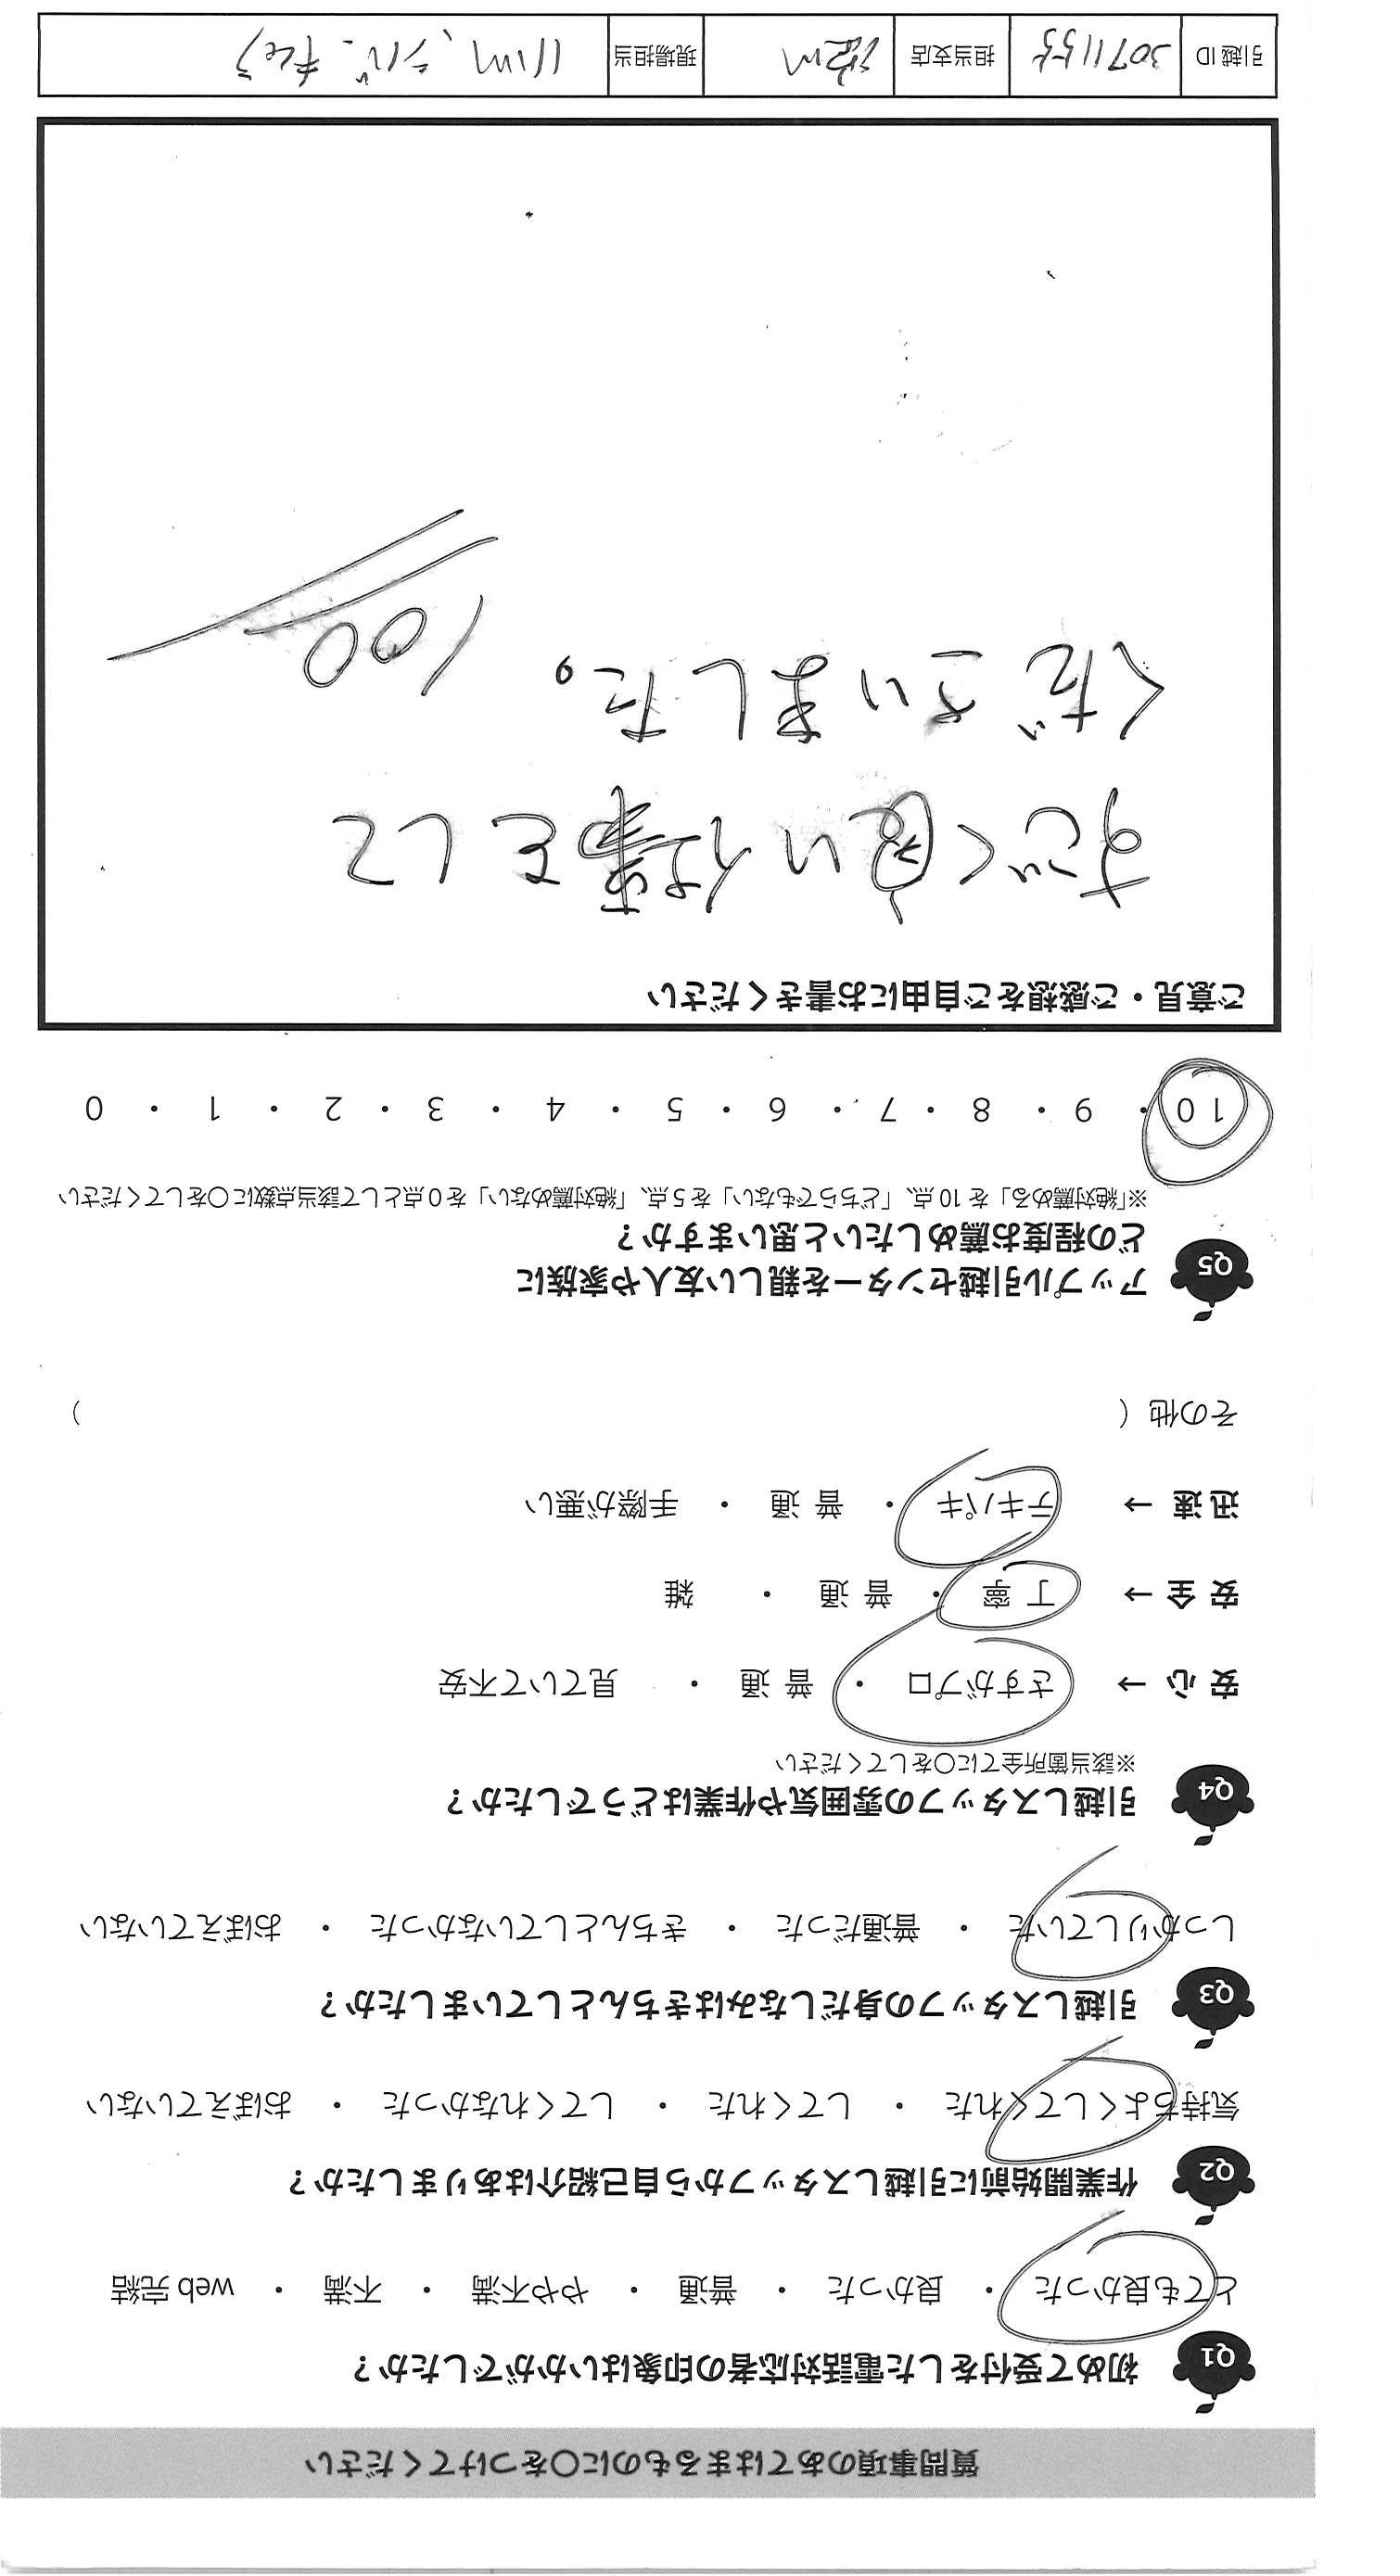 質問事項のあてはまるものに〇をつけてください
Q1 初めて受付をした電話対応者の印象はいかがでしたか？
とても良かった ・ 良かった ・ 普通 ・ やや不満 ・ 不満 ・ web 完結
Q2 作業開始前に引越しスタッフから自己紹介はありましたか？
気持ちよくしてくれた ・ してくれた ・ してくれなかった ・ おぼえていない
Q3 引越しスタッフの身だしなみはきちんとしていましたか？
しっかりしていた ・ 普通だった ・ きちんとしていなかった ・ おぼえていない
Q4 引越しスタッフの雰囲気や作業はどうでしたか？
※該当箇所全てに〇をしてください
安 心 → さすがプロ ・ 普 通 ・ 見ていて不安
安 全 → 丁 寧 ・ 普 通 ・ 雑
迅 速 → テキパキ ・ 普 通 ・ 手際が悪い
その他（ ）
Q5 アップル引越センターを親しい友人や家族に
どの程度お薦めしたいと思いますか？
※「絶対薦める」を 10 点、「どちらでもない」を 5 点、「絶対薦めない」を 0 点として該当点数に〇をしてください
10 ・ 9 ・ 8 ・ 7 ・ 6 ・ 5 ・ 4 ・ 3 ・ 2 ・ 1 ・ 0
ご意見・ご感想をご自由にお書きください
すごく良い仕事をして
くださいました。 100
引越 ID 3071155 担当支店 現場担当